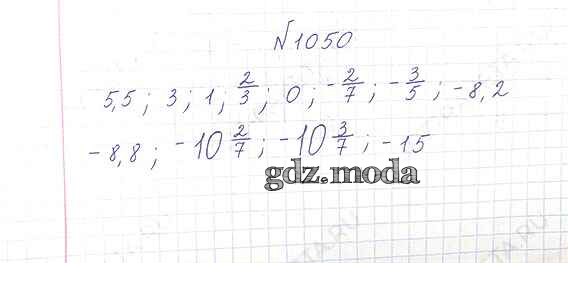 №1050
5,5; 3; 1; 2/3; 0; -2/7; -3/5; -8,2
-8,8; -10 2/7; -10 3/7; -15
gdz.moda